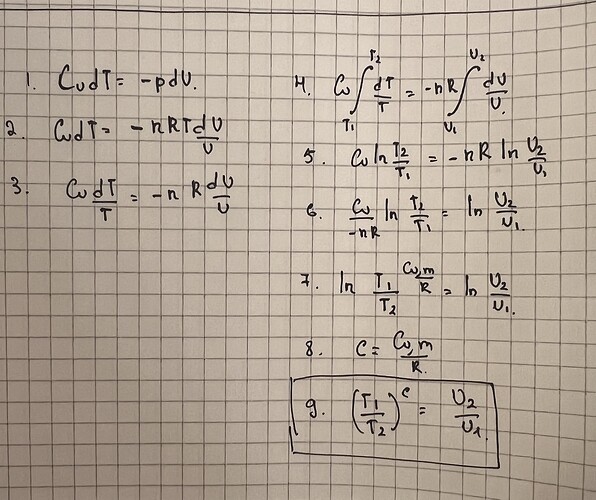 1. CᵥdT = -pdV.
2. CᵥdT = - nRTdV/V
3. CᵥdT/T = -n R dV/V
4. Cᵥ ∫_{T₁}^{T₂} dT/T = -nR ∫_{V₁}^{V₂} dV/V.
5. Cᵥ ln T₂/T₁ = -nR ln V₂/V₁
6. Cᵥ/-nR ln T₂/T₁ = ln V₂/V₁.
7. ln T₁/T₂ ^{Cᵥ,m/R} = ln V₂/V₁.
8. C = Cᵥ,m/R.
9. (T₁/T₂)^c = V₂/V₁.